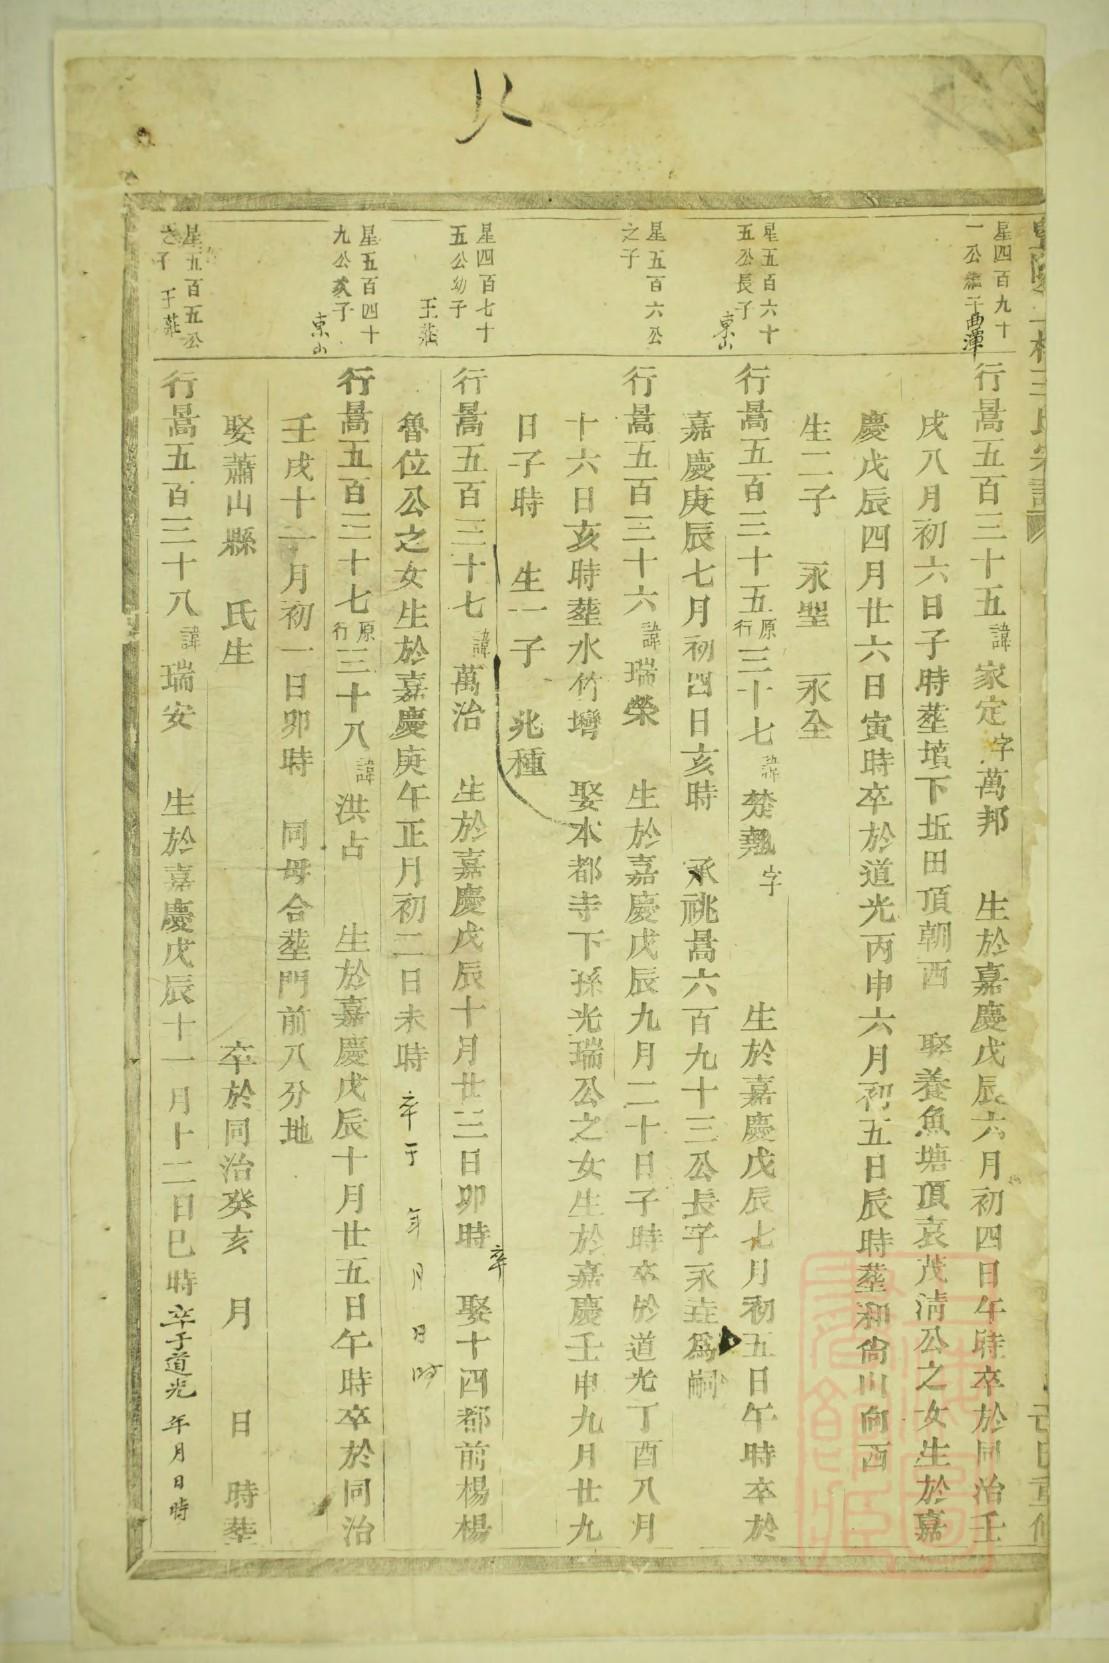 星四百九十
一公
行暠五百三十五諱家定字萬邦　生於嘉慶戊辰六月初四日午時卒於同治壬
戌八月初六日子時塟墳下坵田頂朝西　娶養魚塘頂袁茂淸公之女生於嘉
慶戊辰四月廿六日寅時卒於道光丙申六月初五日辰時塟和尙山向西
生二子　永聖　永全
星五百六十
五公長子
東山
行暠五百三十五原行三十七諱楚　字　生於嘉慶戊辰七月初五日午時卒於
嘉慶庚辰七月初四日亥時　承祧暠六百九十三公長子永　爲嗣
星五百六公
之子
行暠五百三十六諱瑞榮　生於嘉慶戊辰九月二十日子時卒於道光丁酉八月
十六日亥時塟水竹塆　娶本都寺下孫光瑞公之女生於嘉慶壬申九月廿九
日子時　生一子　兆種
星四百七十
五公幼子
王莊
行暠五百三十七諱萬治　生於嘉慶戊辰十月廿三日卯時　卒　娶十四都前楊楊
魯位公之女生於嘉慶庚午正月初二日未時　卒于　年　月　日時
星五百四十
九公次子
東山
行暠五百三十七原行三十八諱洪占　生於嘉慶戊辰十月廿五日午時卒於同治
壬戌十一月初一日卯時　同母合塟門前八分地
娶蕭山縣　氏生　卒於同治癸亥　月　日　時塟
星五百五公
之子　王莊
行暠五百三十八諱瑞安　生於嘉慶戊辰十一月十二日巳時卒于道光　年月日時